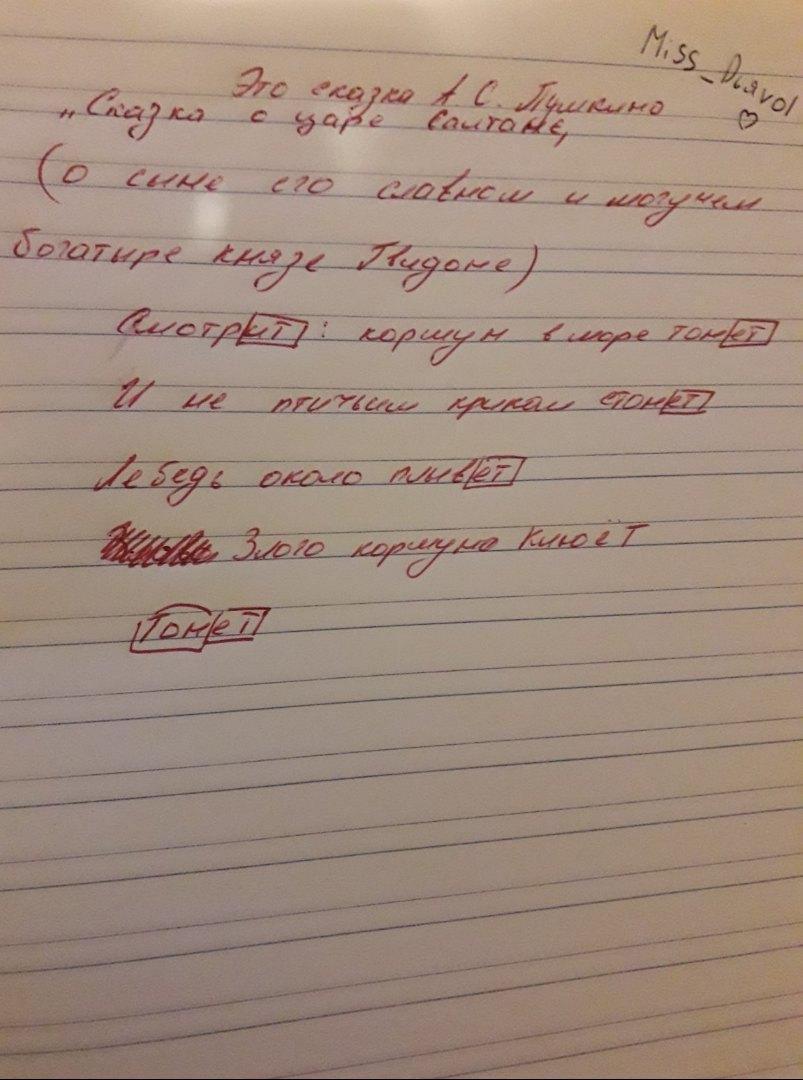 Miss_Dьяvol
Это сказка А С. Пушкина
„Сказка о царе Салтане,
(о сыне его славном и могучем
богатыре князе Гвидоне)
Смотрит: коршун в море тонет
И не птичьим криком стонет
Лебедь около плывёт
Злого коршуна клюёт
Тонет